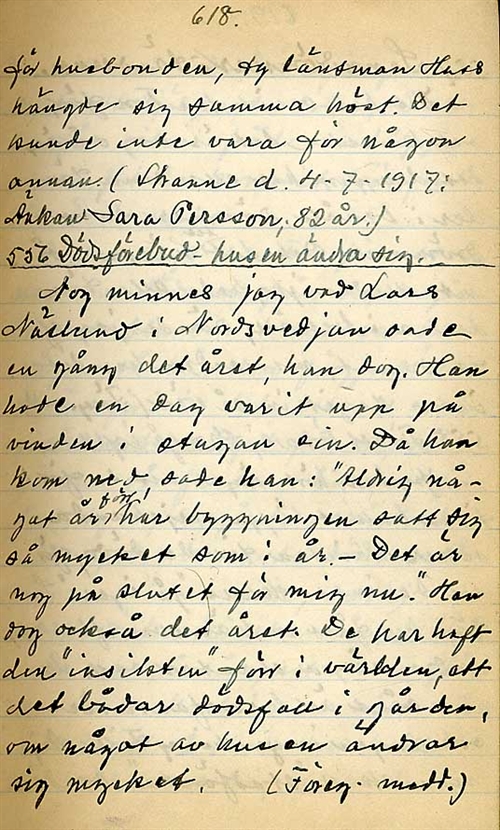 618.
för husbonden, ty länsman Huss
hängde sig samma höst. Det
kunde inte vara för någon
annan. (Skanne d. 4-7-1917:
Änkan Sara Persson, 82 år.)
556 Dödsförebud - husen ändra sig.
Nog minnes jag vad Lars
Näslund i Nordsvedjan sade
en gång det året, han dog. Han
hade en dag varit upp på
vinden i stugan sin. Då han
kom ned sade han: "Aldrig nå-
got år förr har byggningen satt sig
så mycket som i år. - Det är
nog på slutet för mig nu." Han
dog också det året. De har haft
den "insikten" förr i världen, att
det bådar dödsfall i gården,
om något av husen ändrar
sig mycket. (Föreg. medd.)